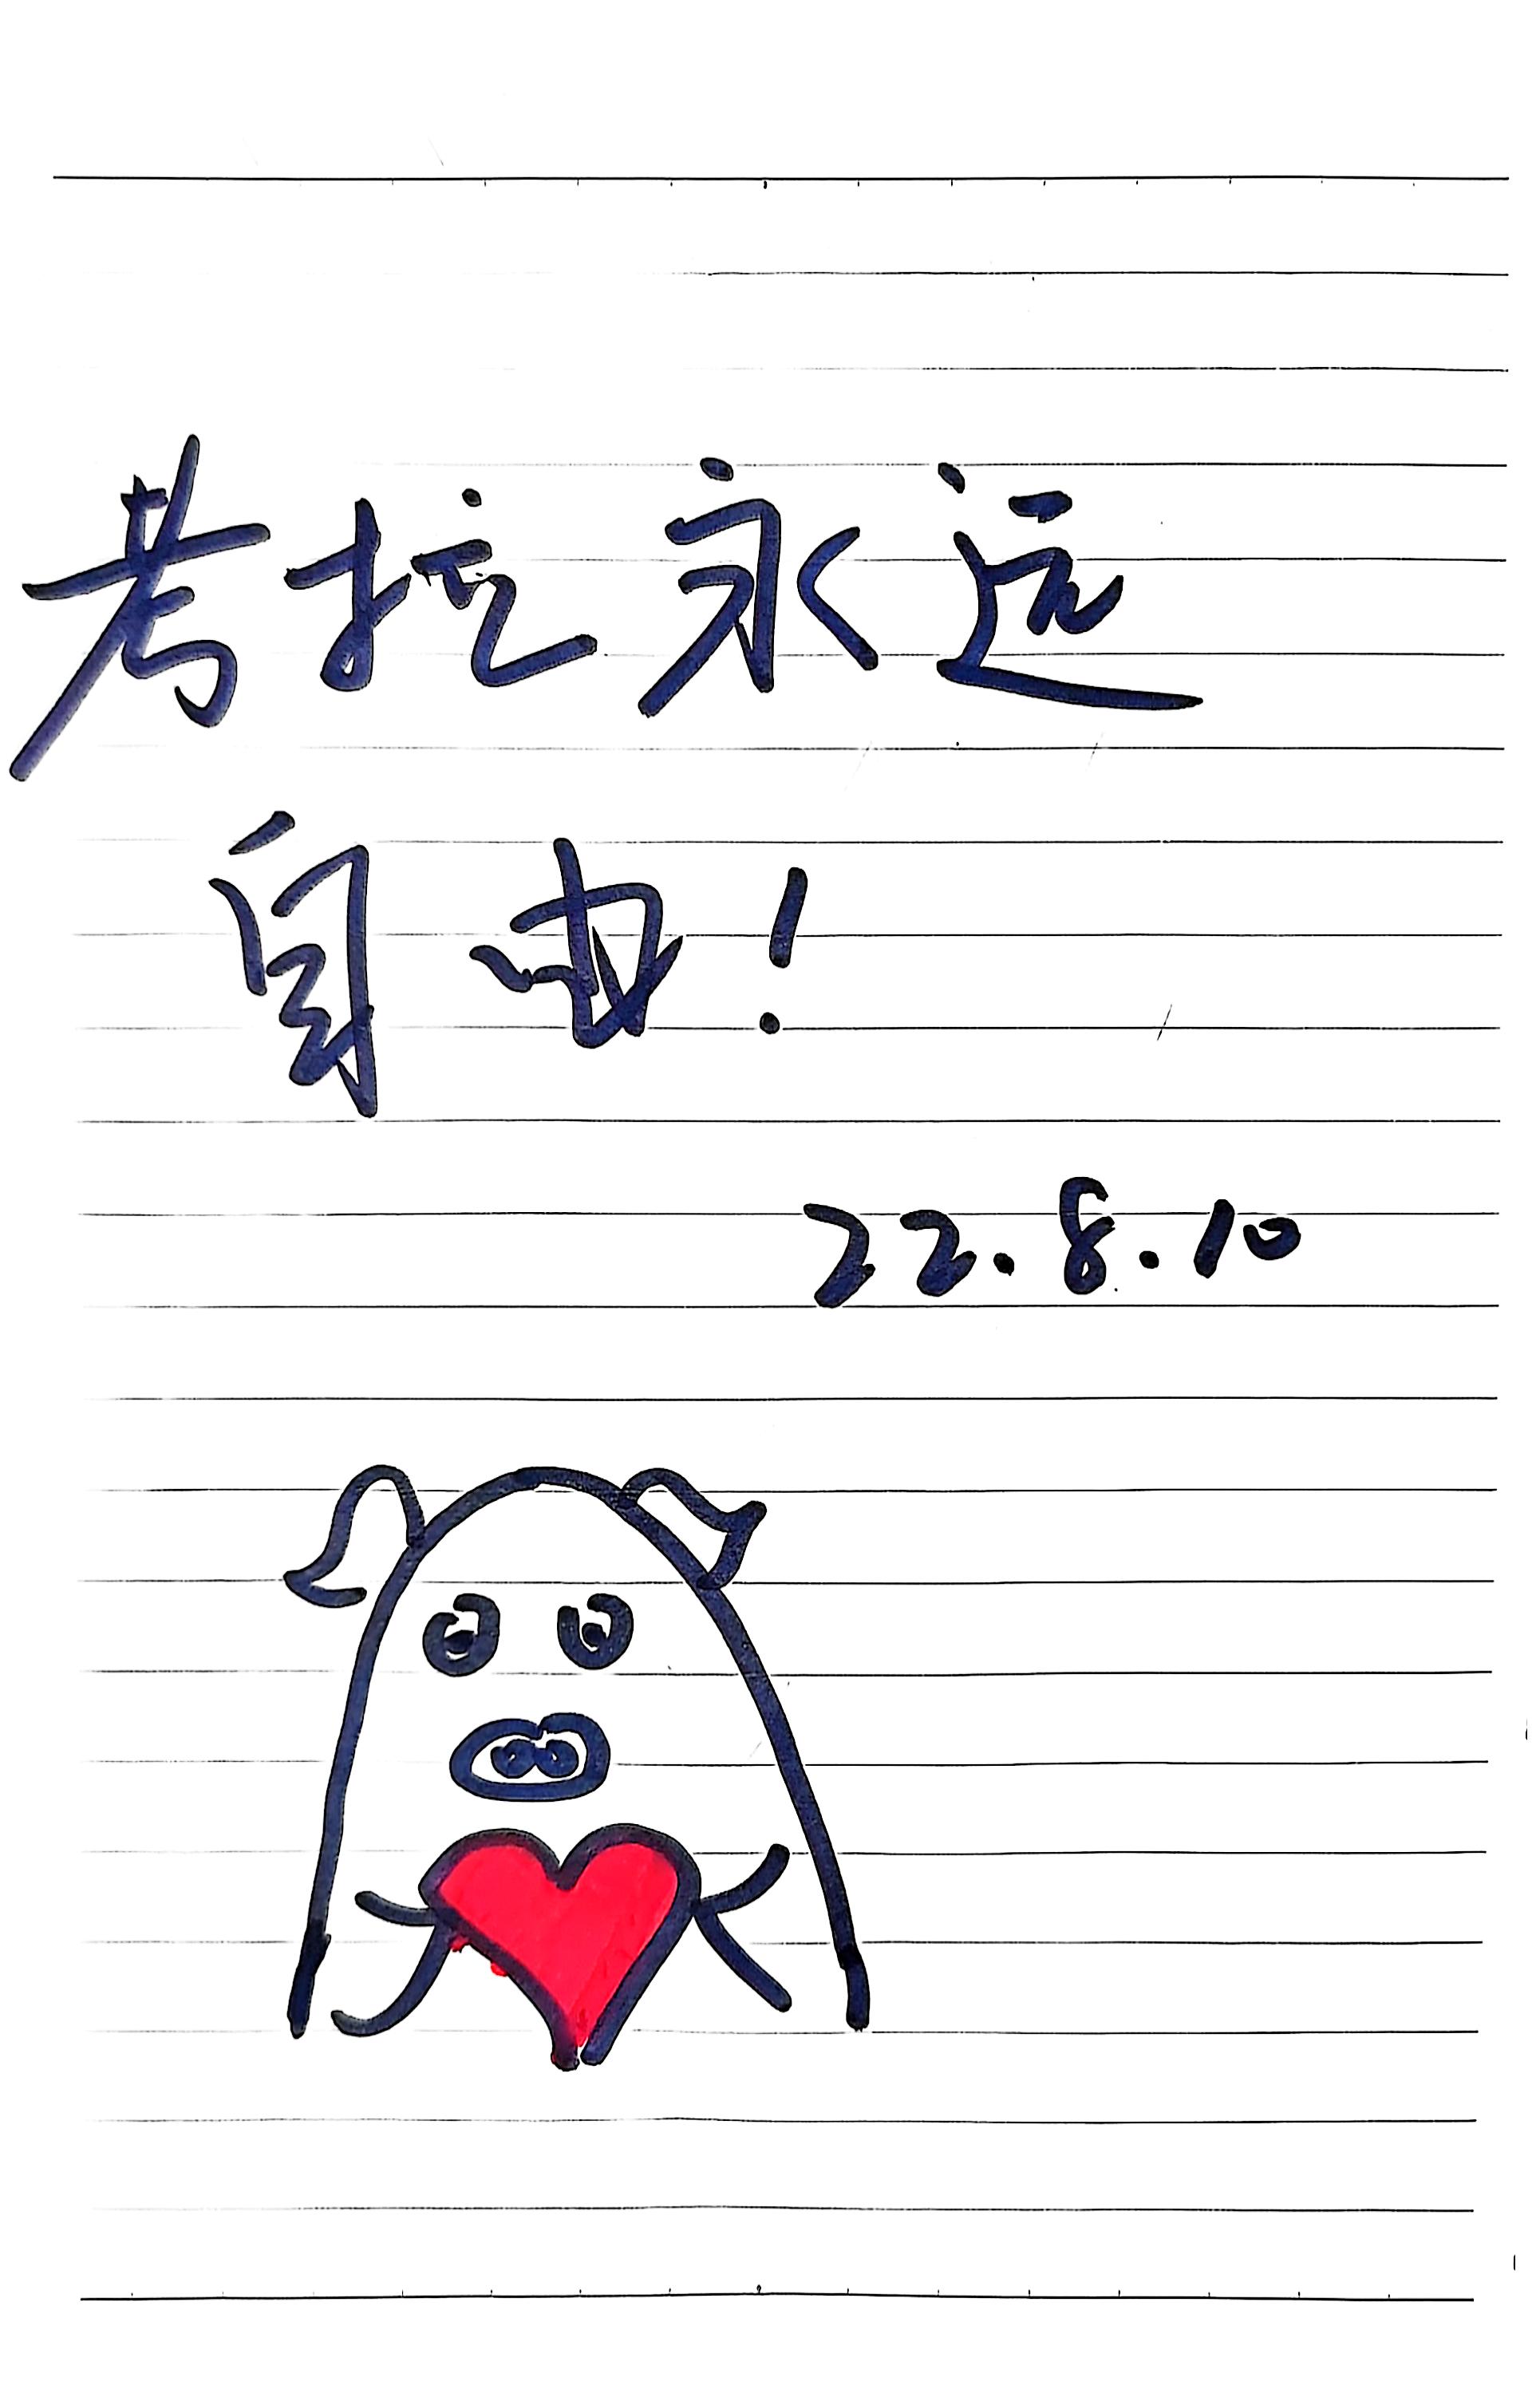 考拉永远
自由！
22.8.10